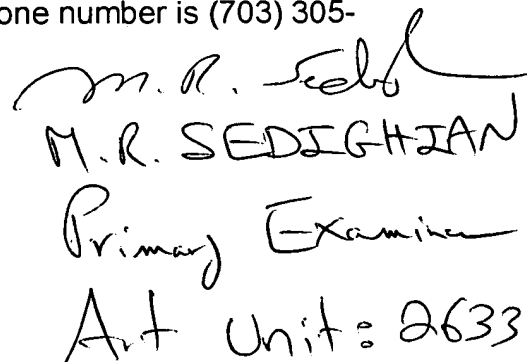 one number is (703) 305-
M. R. Sedi
M.R. SEDIGHIAN
Primary Examiner
Art Unit: 2633